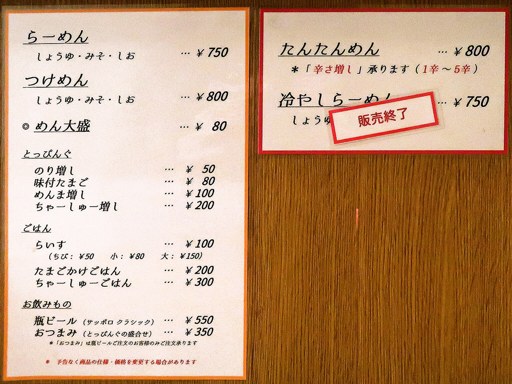 らーめん … ¥750
しょうゆ・みそ・しお
つけめん
しょうゆ・みそ・しお … ¥800
◎ めん大盛 … ¥ 80
とっぴんぐ
のり増し … ¥ 50
味付たまご … ¥ 80
めんま増し … ¥100
ちゃーしゅー増し … ¥200
ごはん
らいす … ¥100
(ちび:¥50 小:¥80 大:¥150)
たまごかけごはん … ¥200
ちゃーしゅーごはん … ¥300
お飲みもの
瓶ビール (サッポロ クラシック) … ¥550
おつまみ (とっぴんぐの盛合せ) … ¥350
*「おつまみ」は瓶ビールご注文のお客様のみご注文承ります
* 予告なく商品の仕様・価格を変更する場合があります
たんたんめん … ¥800
*「辛さ増し」承ります (1辛~5辛)
冷やしらーめん … ¥750
しょうゆ
販売終了